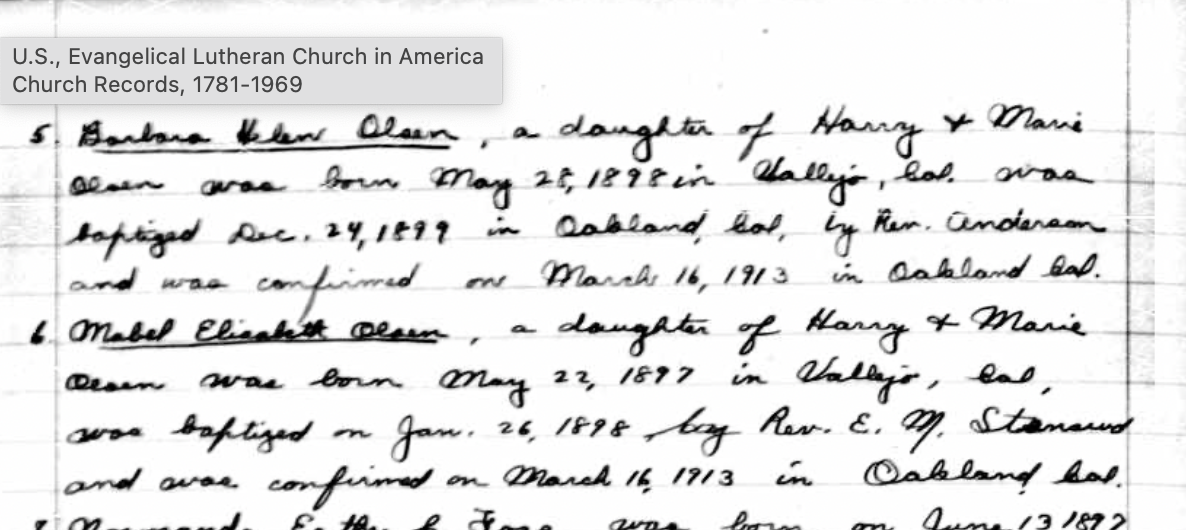 U.S., Evangelical Lutheran Church in America
Church Records, 1781-1969
5. Barbara Helen Olsen, a daughter of Harry & Marie
Olsen was born May 28, 1898 in Vallejo, Cal. was
baptized Dec. 24, 1899 in Oakland, Cal, by Rev. Anderson
and was confirmed on March 16, 1913 in Oakland Cal.
6. Mabel Elisabeth Olsen, a daughter of Harry & Marie
Olsen was born May 22, 1897 in Vallejo, Cal,
was baptized on Jan. 26, 1898, by Rev. E. M. 
and was confirmed on March 16, 1913 in Oakland, Cal.
was born on June 13 1897